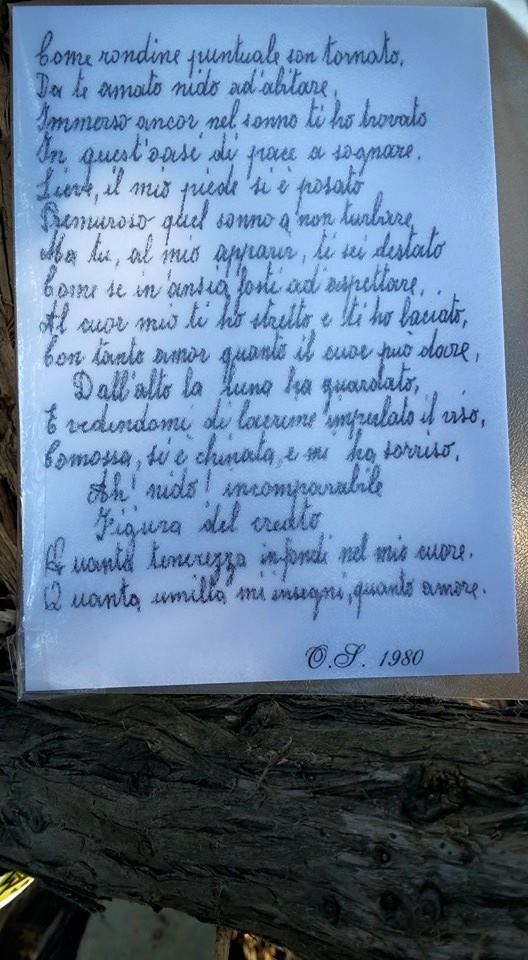 Come rondine puntuale son tornato,
Da te amato nido ad'abitare,
Immerso ancor nel sonno ti ho trovato
In quest'oasi di pace a sognare.
Lieve, il mio piede si è posato
Premuroso quel sonno a non turbare,
Ma tu, al mio apparir, ti sei destato
Come se in'ansia fosti ad'aspettare,
Al cuor mio ti ho stretto e ti ho baciato,
Con tanto amor quanto il cuor può dare,
Dall'alto la luna ha guardato,
E vedendomi di lacrime imperlato il viso,
Comossa, si è chinata, e mi ha sorriso,
Ah! nido! incomparabile
Figura del creato
Quanta tenerezza infondi nel mio cuore.
Quanta umiltà mi insegni, quanto amore.
O.S. 1980